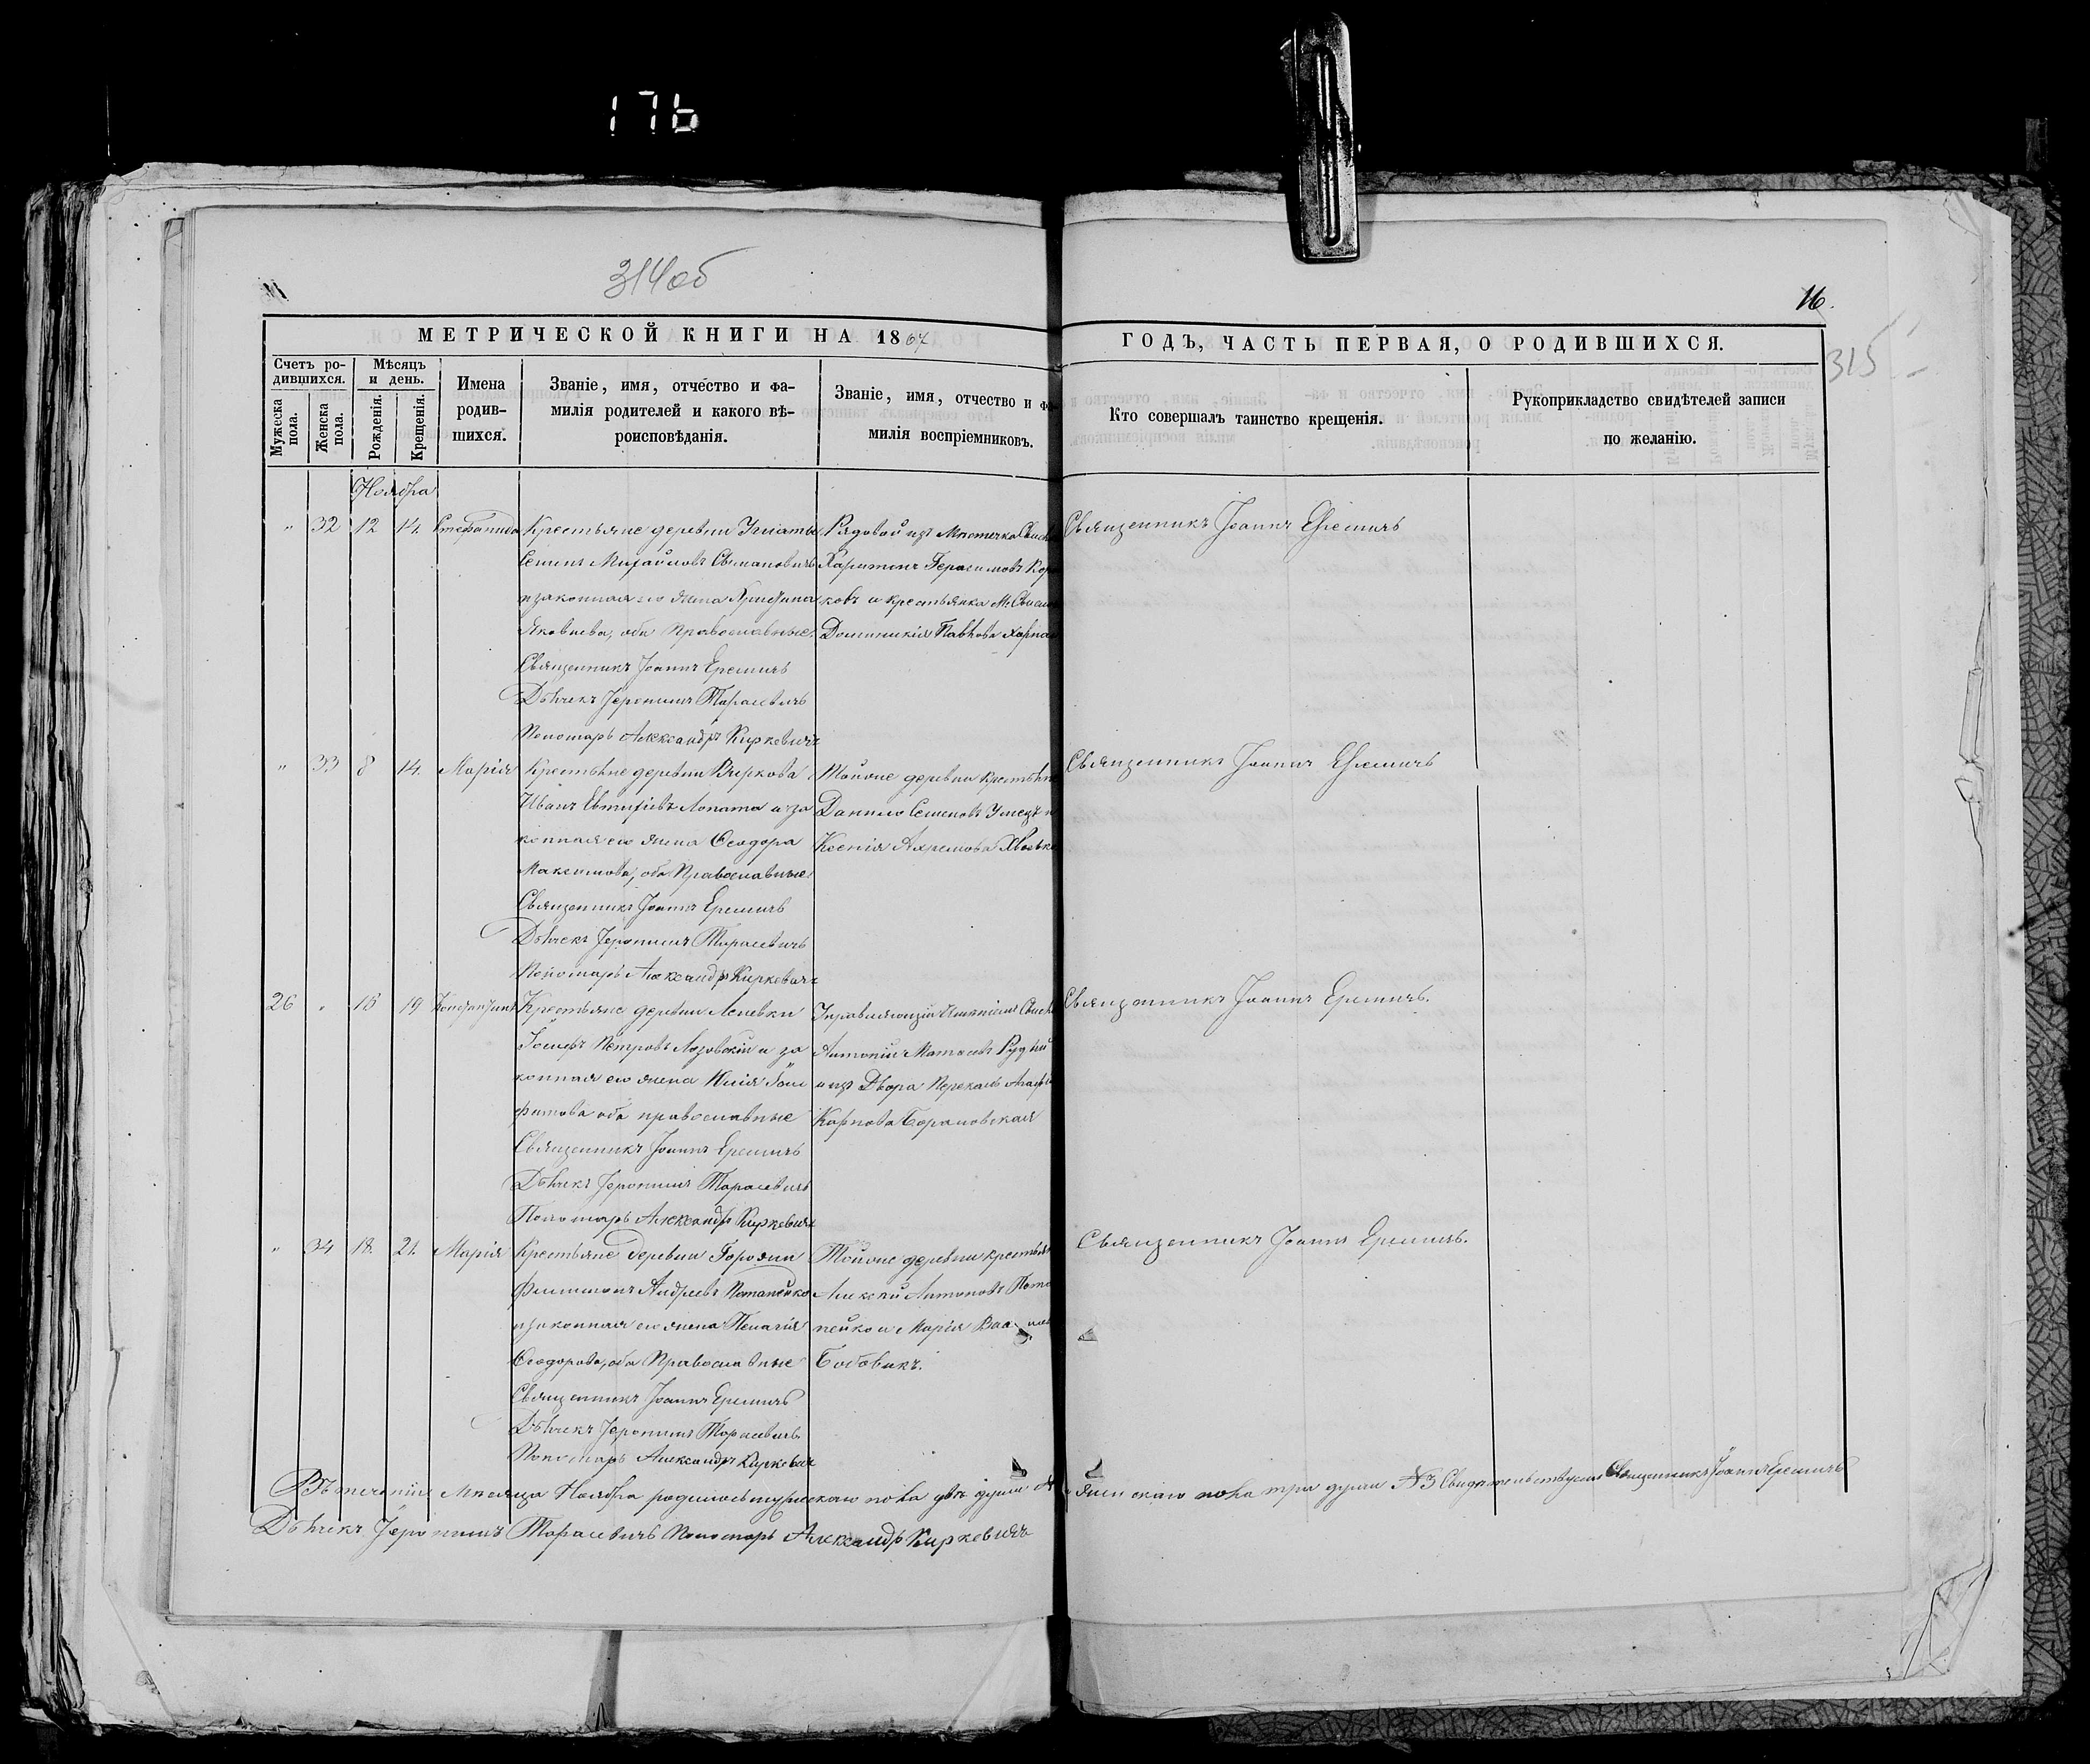 176
314 об
16.
315
МЕТРИЧЕСКОЙ КНИГИ НА 1867
ГОДЪ, ЧАСТЬ ПЕРВАЯ, О РОДИВШИХСЯ.
Счетъ ро-
дившихся.
Мужеска пола.
Женска пола.
Мѣсяцъ
и день.
Рожденія.
Крещенія.
Имена
родив-
шихся.
Званіе, имя, отчество и фа-
милія родителей и какого вѣ-
роисповѣданія.
Званіе, имя, отчество и фа-
милія воспріемниковъ.
Кто совершалъ таинство крещенія.
Рукоприкладство свидѣтелей записи
по желанію.
Ноября
" 32 12 14. Стефанида Крестьяне деревни Рядовой изъ Мѣстечка Священникъ Іоаннъ Еремичъ
Семенъ Михайловъ Харитонъ Герасимовъ
и законная его жена Христина ковъ и крестьянка М.
Яковлева, оба Православные. Доминикія Павлова
Священникъ Іоаннъ Еремичъ
Дьячекъ Іеронимъ Тарасевичъ
Пономарь Александръ Киркевичъ
" 33 8 14. Марія Крестьяне деревни Виркова Тойже деревни крестьяне Священникъ Іоаннъ Еремичъ
Иванъ Евтихіевъ Лопата и за Данило Семеновъ
конная его жена Ѳеодора Ксенія Ахремова
Максимова, оба Православные
Священникъ Іоаннъ Еремичъ
Дьячекъ Іеронимъ Тарасевичъ
Пономарь Александръ Киркевичъ
26 " 15 19 Константинъ Крестьяне деревни Лепевки Управляющій Имѣніемъ Священникъ Іоаннъ Еремичъ.
Іосифъ Петровъ Лозовскій и за Антоній Матѳеевъ
конная его жена Юлія и изъ Двора
фатова оба православные Карпова Барановская
Священникъ Іоаннъ Еремичъ
Дьячекъ Іеронимъ Тарасевичъ
Пономарь Александръ Киркевичъ
" 34 18. 21. Марія Крестьяне деревни Тойже деревни крестьяне Священникъ Іоаннъ Еремичъ.
Филимонъ Андреевъ Потапейко Алексѣй Антоновъ Пота
и законная его жена Пелагія пейко и Марія
Ѳеодорова, оба Православные Бобовикъ.
Священникъ Іоаннъ Еремичъ
Дьячекъ Іеронимъ Тарасевичъ
Пономарь Александръ Киркевичъ
Въ теченіи Мѣсяца Ноября родилось мужескаго пола двѣ души женскаго пола три души №3 Свидѣтельствуемъ Священникъ Іоаннъ Еремичъ
Дьячекъ Іеронимъ Тарасевичъ Пономарь Александръ Киркевичъ